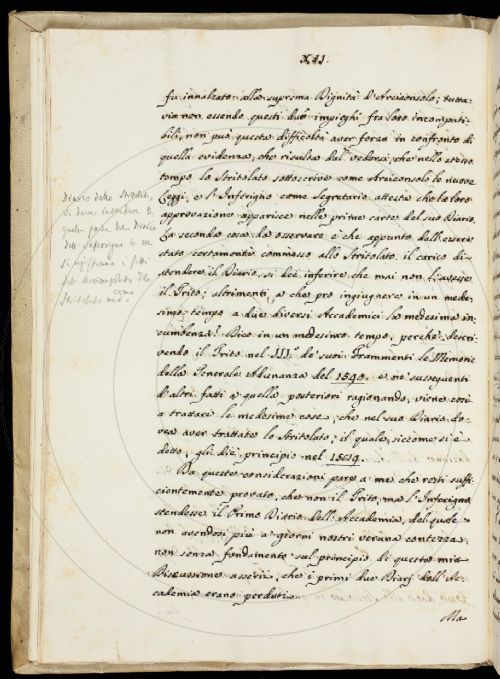 XII.
fu innalzato alla suprema Dignità d'Arciconsolo; tutta-
via non essendo questi due impieghi fra loro incompati-
bili, non può questa difficoltà aver forza in confronto di
quella evidenza, che risulta dal vedersi, che nello stesso
tempo lo Stritolato sottoscrive come Arciconsolo le nuove
Leggi, e l'Inferigno come Segretario attesta che la loro
approvazione apparisce nelle prime carte del suo Diario.
La seconda cosa da osservare è che appunto dall'essere
stato certamente commesso allo Stritolato il carico di
stendere il Diario, si dee inferire che mai non l'avesse
il Trito; altrimenti, a che pro ingiugnere in un mede-
simo tempo a due diversi Accademici la medesima in-
cumbenza? Dico in un medesimo tempo, perchè descri-
vendo il Trito nel III.° de' suoi Frammenti le Memorie
della Generale Adunanza del 1590. e ne' susseguenti
d'altri fatti a quella posteriori ragionando, viene così
a trattare le medesime cose, che nel suo Diario do-
vea aver trattate lo Stritolato; il quale, siccome si è
detto, gli diè principio nel 1589.
Da queste considerazioni pare a me che resti suffi-
cientemente provato, che non il Trito, ma l'Inferigno
stendesse il Primo Diario dell'Accademia, del quale
non avendosi più a' giorni nostri veruna contezza,
non senza fondamento sul principio di questa mia
Discussione asserii, che i primi due Diarj dell'Ac-
cademia erano perduti.
Ma
Diario dello Stritolato,
si deve intendere di
quella parte del Diario
dell'Inferigno in cui
si registrano i fatti
dell'Arciconsolato dello
Stritolato med.mo